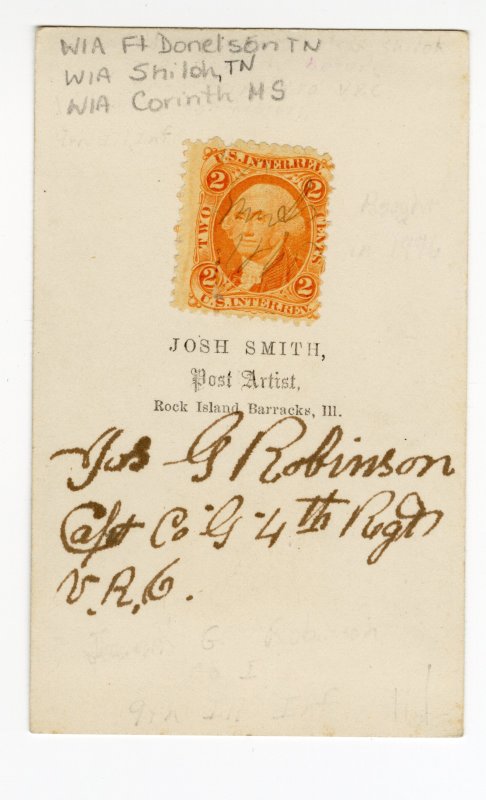 WIA Ft Donelson TN
WIA Shiloh, TN
WIA Corinth MS
U.S. INTER. REV.
2 2
TWO CENTS
2 2
U.S. INTER. REV.
JOSH SMITH,
Post Artist,
Rock Island Barracks, Ill.
Jos G Robinson
Capt Co "G" 4th Regt
V. R. C.
G Robinson
Co I